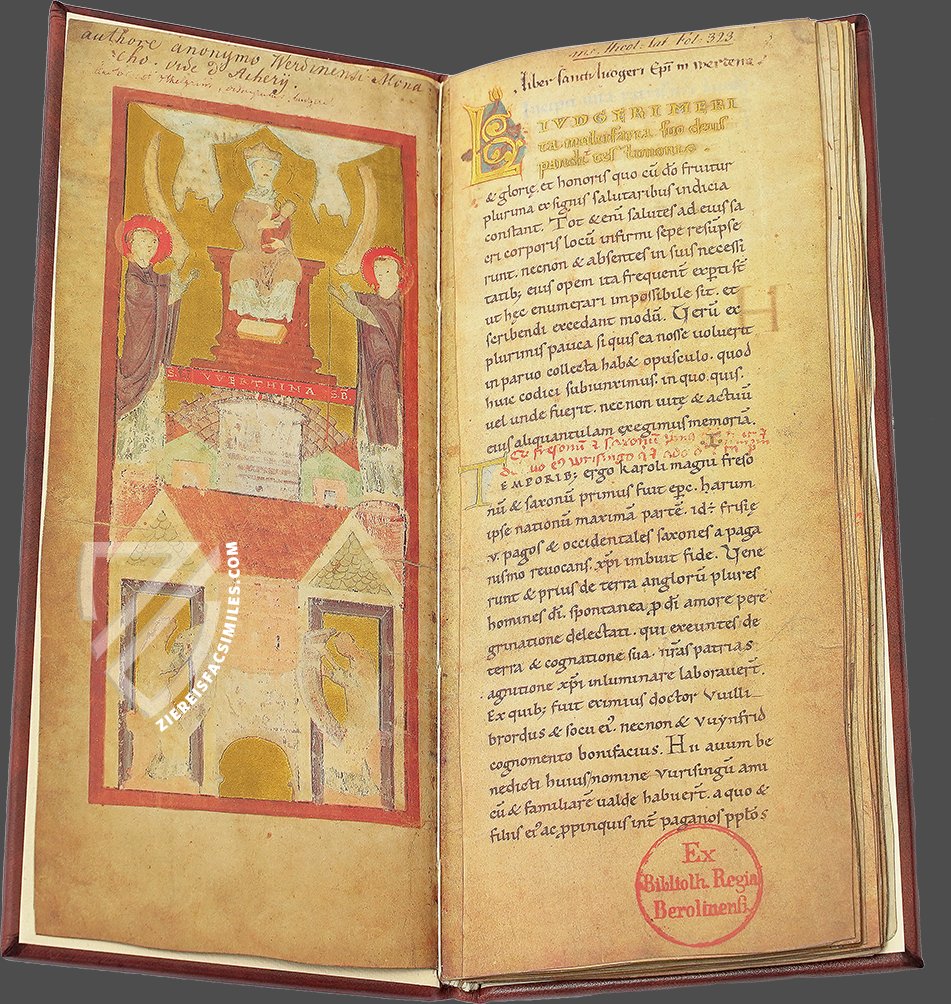 authore anonymo Werdinensi Mona
cho. vide D Acherÿ.
S VVERTHINA SB
ZIEREISFACSIMILES.COM
ms. theol. lat. Fol. 323
Liber sancti luogeri Epi in werdena
LIVDGERI MERI
ta multifaria suo deus
pandit
& glorię. et honoris quo cū dō fruitur
plurima ex signis salutaribus indicia
constant. Tot & enī salutes ad eius sa
cri corporis locū infirmi sepe resūpse
runt. necnon & absentes in suis necessi
tatib; eius opem ita frequent expti st
ut hęc enumerari impossibile sit. et
scribendi excedant modū. Verū ex
plurimis pauca si quis ea nosse voluerit
in parvo collecta hab& opusculo. quod
huic codici subiunximus. in quo quis.
uel unde fuerit. necnon vitę & actuū
eius aliquantulam exegimus memoriam.
TEMPORIB; ergo karoli magni freso
nū & saxonū primus fuit epc. harum
ipse nationū maximā partē. id÷ frisię
v. pagos & occidentales saxones a paga
nismo revocans. xpi imbuit fide. Vene
runt & prius de terra anglorū plures
homines di. spontanea p di amore pere
grinatione delectati. qui exeuntes de
terra & cognatione sua. nras patrias
agnitione xpi inluminare laboravert.
Ex quib; fuit eximius doctor Vuilli
brordus & socii ei'. necnon & vuynfrid
cognomento bonifacius. Hii avum be
nedicti huius nomine vurisingū ami
cū & familiarē valde habuert. a quo &
filiis ei' ac ppinquis int paganos pplos
H
Ex
Biblioth. Regia
Berolinensi